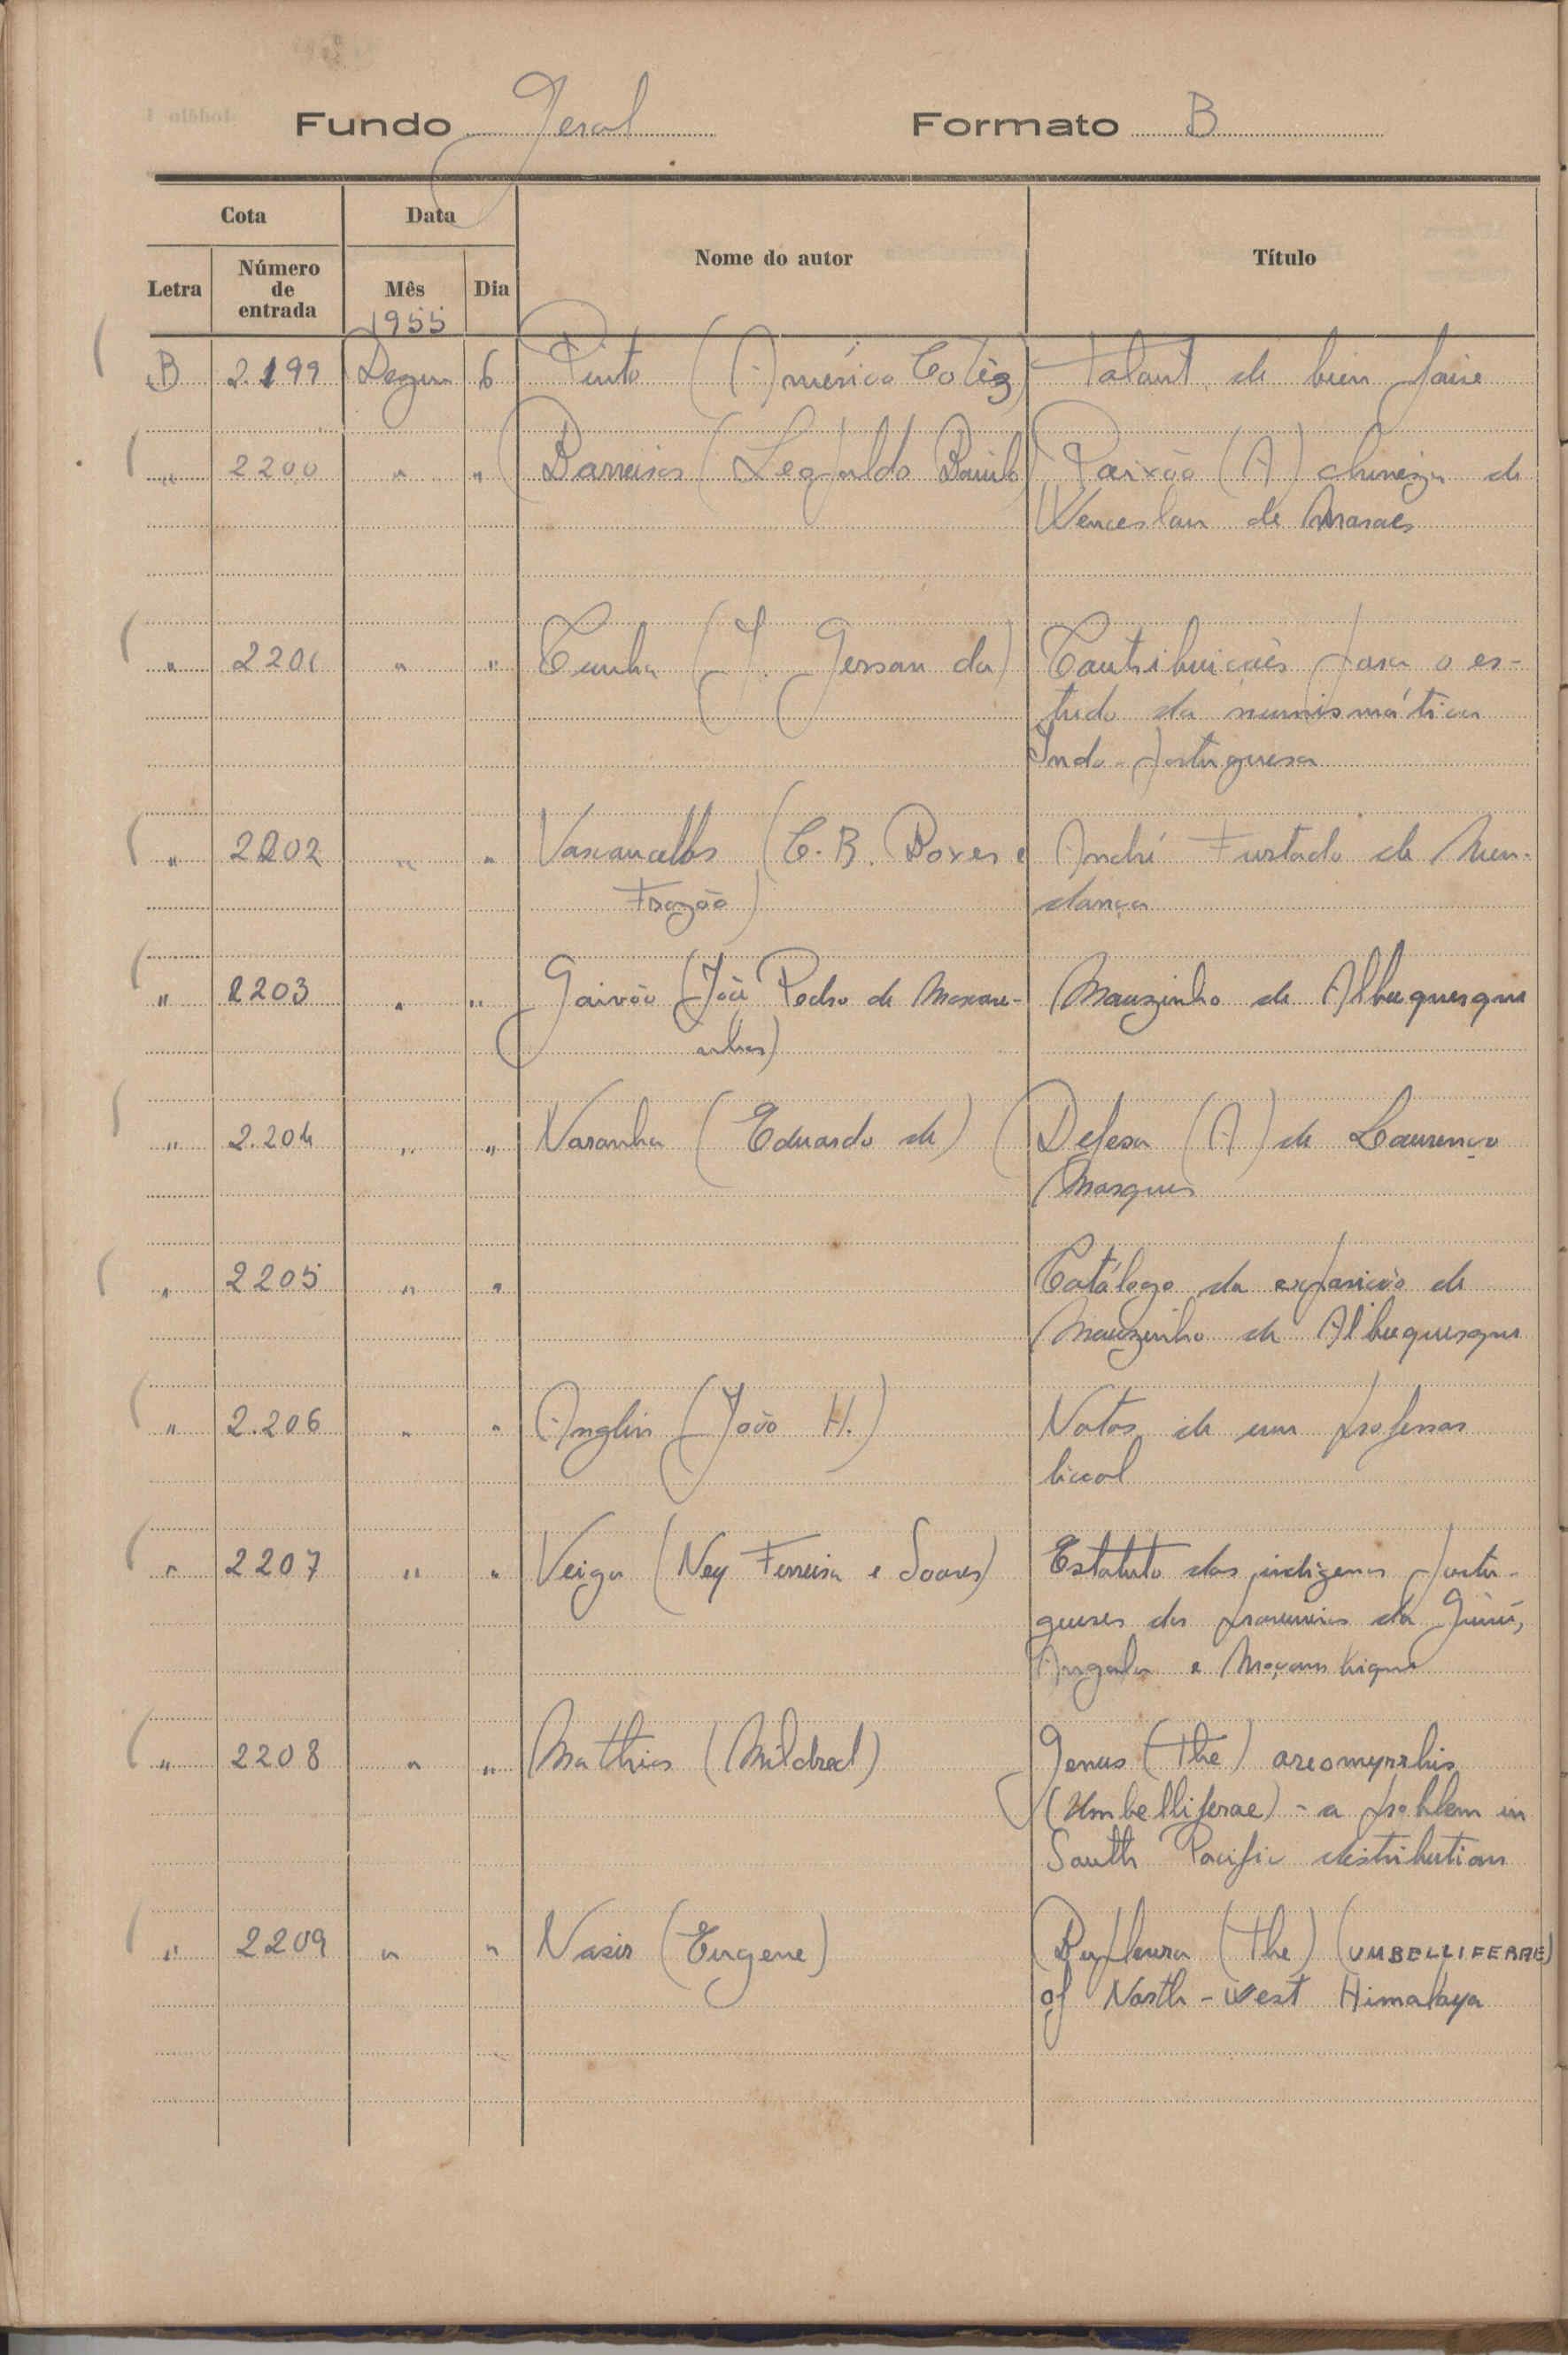 Fundo Geral Formato B
Cota Data
Nome do autor Título
Letra Número de entrada Mês Dia
1955
B 2.199 Dezem 6 Pinto (Américo Cortêz) Talant de bien faire
" 2200 " " Barreiros (Leopoldo Danilo) Paixão (A) chineza de
Wenceslau de Moraes
" 2201 " " Cunha (J. Gerson da) Contribuições para o es-
tudo da numismática
Indo-portuguesa
" 2202 " " Vasconcellos (C.B. Boxer e André Furtado de Men-
Frazão) donça
" 2203 " " Gaivão (José Pedro de Mascare- Mouzinho de Albuquerque
nhas)
" 2.204 " " Noronha (Eduardo de) Defesa (A) de Lourenço
Marques
" 2205 " " Catálogo da exposição de
Mouzinho de Albuquerque
" 2.206 " " Anglin (João H.) Notas de um professor
liceal
" 2207 " " Veiga (Ney Ferreira e Soares) Estatuto dos indígenas portu-
gueses das províncias da Guiné,
Angola e Moçambique
" 2208 " " Mathias (Mildred) Genus (the) oreomyrrhis
(Umbelliferae) - a problem in
South Pacific distribution
" 2209 " " Nasir (Eugene) Bupleura (the) (UMBELLIFERAE)
of North-west Himalaya